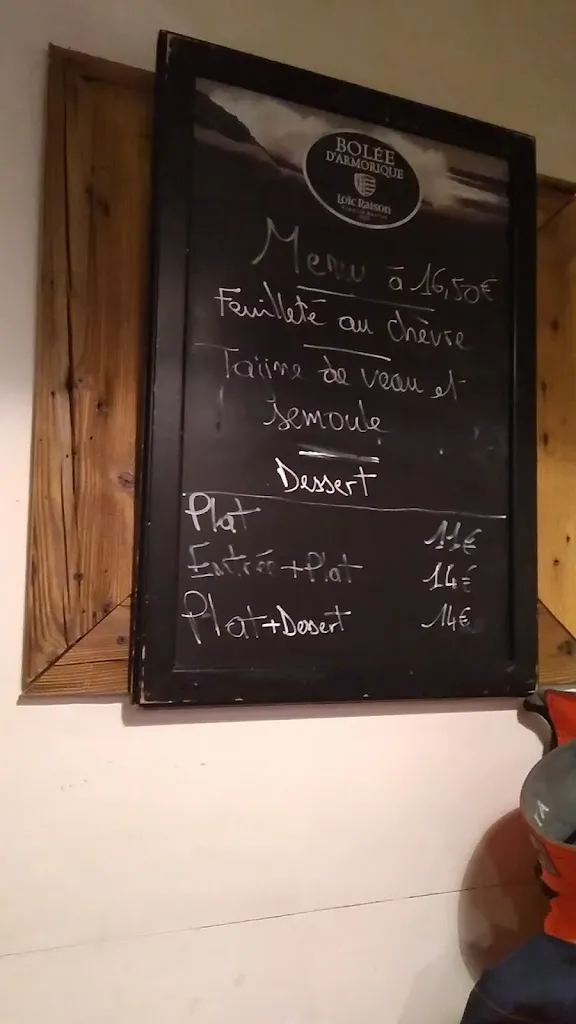 BOLÉE
D'ARMORIQUE
Loïc Raison
Menu à 16,50€
Feuilleté au chèvre
Tajine de veau et
semoule
Dessert
Plat 11€
Entrée+Plat 14€
Plat+Dessert 14€